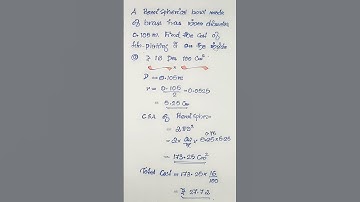 A Hemi spherical bowl made
of brass has inner diameter
0.105m. Find the Cost of
tin-plating it on the inside
@ ₹ 16 Per 100 Cm²
D = 0.105m
r = 0.105/2 = 0.0525
= 5.25 Cm
CSA of Hemisphere
= 2πr²
= 2 × 22/7 × 5.25 × 5.25
0.75
= 173.25 Cm²
Total Cost = 173.25 × 16/100
= ₹ 27.72